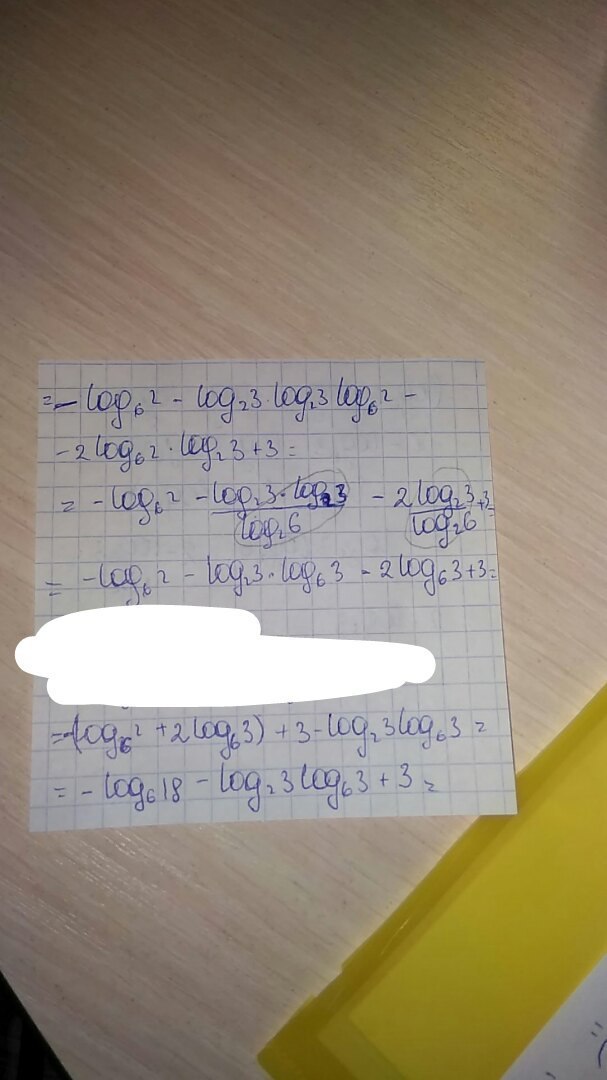 = - log₆2 - log₂3·log₂3 log₆2 -
- 2log₆2·log₂3+3=
= - log₆2 - log₂3·log₂3/log₂6 - 2log₂3/log₂6 +3=
= -log₆2 - log₂3·log₆3 - 2log₆3+3=
=-(log₆2 +2log₆3) +3-log₂3log₆3 =
= - log₆18 - log₂3log₆3 + 3 =